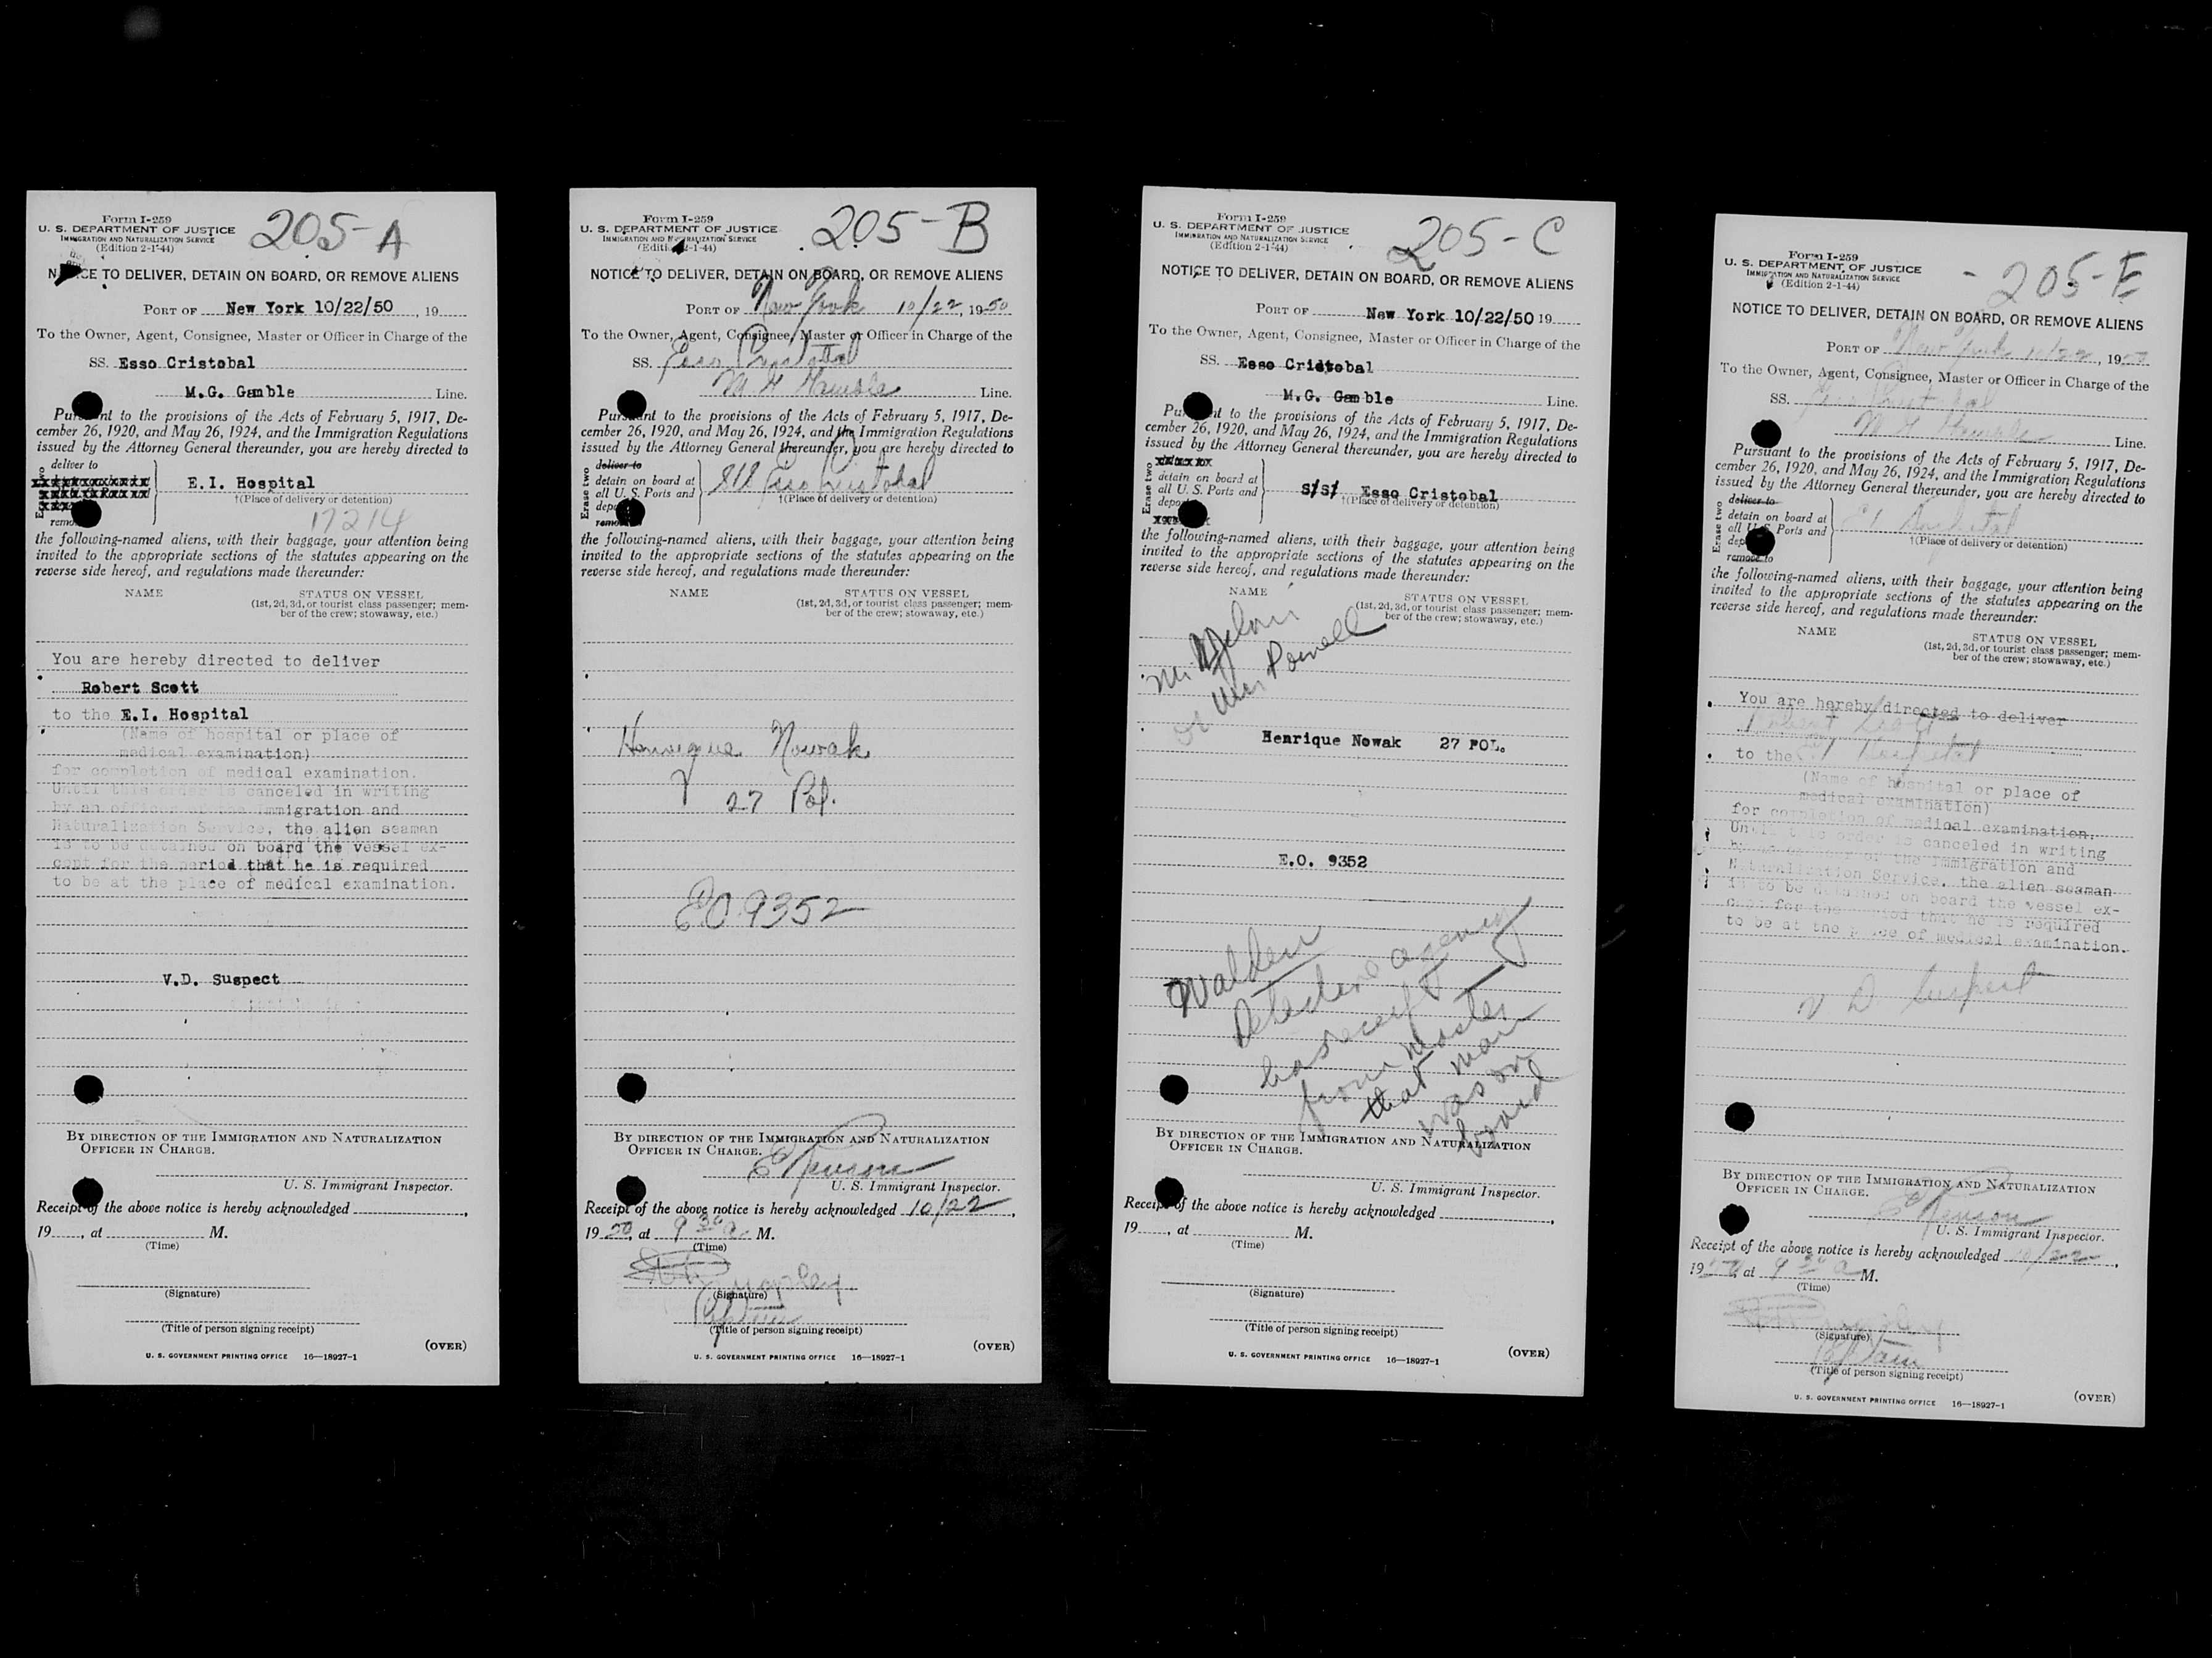 Form I-259
U. S. DEPARTMENT OF JUSTICE
IMMIGRATION AND NATURALIZATION SERVICE
(Edition 2-1-44)
205-A
NOTICE TO DELIVER, DETAIN ON BOARD, OR REMOVE ALIENS
PORT OF New York 10/22/50, 19
To the Owner, Agent, Consignee, Master or Officer in Charge of the
SS. Esso Cristobal
M.G. Gamble Line.
Pursuant to the provisions of the Acts of February 5, 1917, De-
cember 26, 1920, and May 26, 1924, and the Immigration Regulations
issued by the Attorney General thereunder, you are hereby directed to
Erase two
deliver to
E.I. Hospital
†(Place of delivery or detention)
17214
the following-named aliens, with their baggage, your attention being
invited to the appropriate sections of the statutes appearing on the
reverse side hereof, and regulations made thereunder:
NAME STATUS ON VESSEL
(1st, 2d, 3d, or tourist class passenger; mem-
ber of the crew; stowaway, etc.)
You are hereby directed to deliver
Robert Scott
to the E.I. Hospital
(Name of hospital or place of
medical examination)
for completion of medical examination.
Until this order is canceled in writing
by an officer of the Immigration and
Naturalization Service, the alien seaman
is to be detained on board the vessel ex-
cept for the period that he is required
to be at the place of medical examination.
V.D. Suspect
BY DIRECTION OF THE IMMIGRATION AND NATURALIZATION
OFFICER IN CHARGE.
U. S. Immigrant Inspector.
Receipt of the above notice is hereby acknowledged ,
19 , at M.
(Time)
(Signature)
(Title of person signing receipt)
(OVER)
U. S. GOVERNMENT PRINTING OFFICE 16—18927-1
Form I-259
U. S. DEPARTMENT OF JUSTICE
IMMIGRATION AND NATURALIZATION SERVICE
(Edition 2-1-44)
205-B
NOTICE TO DELIVER, DETAIN ON BOARD, OR REMOVE ALIENS
PORT OF New York 10/22, 1950
To the Owner, Agent, Consignee, Master or Officer in Charge of the
SS. Esso Cristobal
M G Gamble Line.
Pursuant to the provisions of the Acts of February 5, 1917, De-
cember 26, 1920, and May 26, 1924, and the Immigration Regulations
issued by the Attorney General thereunder, you are hereby directed to
Erase two
deliver to
detain on board at
all U. S. Ports and
S/S Esso Cristobal
†(Place of delivery or detention)
the following-named aliens, with their baggage, your attention being
invited to the appropriate sections of the statutes appearing on the
reverse side hereof, and regulations made thereunder:
NAME STATUS ON VESSEL
(1st, 2d, 3d, or tourist class passenger; mem-
ber of the crew; stowaway, etc.)
Henrique Nowak
27 Pol.
EO 9352
BY DIRECTION OF THE IMMIGRATION AND NATURALIZATION
OFFICER IN CHARGE.
U. S. Immigrant Inspector.
Receipt of the above notice is hereby acknowledged 10/22,
1950, at 9 30 a M.
(Time)
(Signature)
(Title of person signing receipt)
(OVER)
U. S. GOVERNMENT PRINTING OFFICE 16—18927-1
Form I-259
U. S. DEPARTMENT OF JUSTICE
IMMIGRATION AND NATURALIZATION SERVICE
(Edition 2-1-44)
205-C
NOTICE TO DELIVER, DETAIN ON BOARD, OR REMOVE ALIENS
PORT OF New York 10/22/50 19
To the Owner, Agent, Consignee, Master or Officer in Charge of the
SS. Esso Cridtobal
M.G. Gamble Line.
Pursuant to the provisions of the Acts of February 5, 1917, De-
cember 26, 1920, and May 26, 1924, and the Immigration Regulations
issued by the Attorney General thereunder, you are hereby directed to
Erase two
detain on board at
all U. S. Ports and
S/S/ Esso Cristobal
†(Place of delivery or detention)
the following-named aliens, with their baggage, your attention being
invited to the appropriate sections of the statutes appearing on the
reverse side hereof, and regulations made thereunder:
NAME STATUS ON VESSEL
(1st, 2d, 3d, or tourist class passenger; mem-
ber of the crew; stowaway, etc.)
Powell
Henrique Nowak 27 POL.
E.O. 9352
Walden
Detective agency
has receipt
from Master
that man
was on
board
BY DIRECTION OF THE IMMIGRATION AND NATURALIZATION
OFFICER IN CHARGE.
U. S. Immigrant Inspector.
Receipt of the above notice is hereby acknowledged ,
19 , at M.
(Time)
(Signature)
(Title of person signing receipt)
(OVER)
U. S. GOVERNMENT PRINTING OFFICE 16—18927-1
Form I-259
U. S. DEPARTMENT OF JUSTICE
IMMIGRATION AND NATURALIZATION SERVICE
(Edition 2-1-44)
- 205-E
NOTICE TO DELIVER, DETAIN ON BOARD, OR REMOVE ALIENS
PORT OF New York 10/22, 1950
To the Owner, Agent, Consignee, Master or Officer in Charge of the
SS. Esso Cristobal
M G Gamble Line.
Pursuant to the provisions of the Acts of February 5, 1917, De-
cember 26, 1920, and May 26, 1924, and the Immigration Regulations
issued by the Attorney General thereunder, you are hereby directed to
Erase two
deliver to
detain on board at
all U. S. Ports and
remove to
EI Hospital
†(Place of delivery or detention)
the following-named aliens, with their baggage, your attention being
invited to the appropriate sections of the statutes appearing on the
reverse side hereof, and regulations made thereunder:
NAME STATUS ON VESSEL
(1st, 2d, 3d, or tourist class passenger; mem-
ber of the crew; stowaway, etc.)
You are hereby directed to deliver
Robert Scott
to the EI Hospital
(Name of hospital or place of
medical examination)
for completion of medical examination.
Until this order is canceled in writing
by an officer of the Immigration and
Naturalization Service, the alien seaman
is to be detained on board the vessel ex-
cept for the period that he is required
to be at the place of medical examination.
V D Suspect
BY DIRECTION OF THE IMMIGRATION AND NATURALIZATION
OFFICER IN CHARGE.
U. S. Immigrant Inspector.
Receipt of the above notice is hereby acknowledged 10/22,
1950, at 9 30 a M.
(Time)
(Signature)
Captain
(Title of person signing receipt)
(OVER)
U. S. GOVERNMENT PRINTING OFFICE 16—18927-1